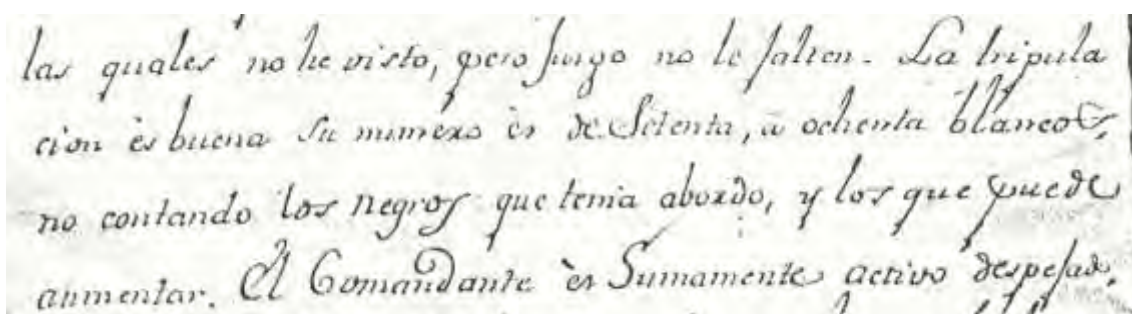 las quales no he visto, pero jusgo no le falten. La tripula
cion ès buena su numero ès de Setenta, à ochenta blancos,
no contando los negros que tenia abordo, y los que puede
aumentar. El Comandante ès Sumamente activo despejado,